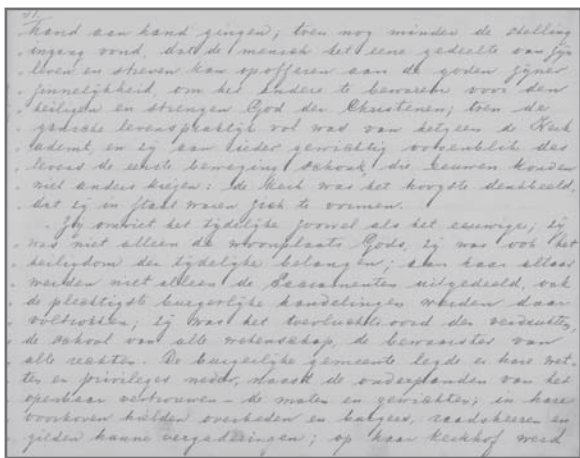 hand aan hand gingen; toen nog minder de stelling
ingang vond, dat de mensch het eene gedeelte van zijn
leven en streven kan opofferen aan de goden zijner
zinnelijkheid, om het andere te bewaren voor den
heiligen en strengen God der Christenen; toen de
gansche levenspraktijk vol was van hetgeen de Kerk
ademt, en zij aan ieder gewichtig oogenblik des
levens de eerste beweging schonk, die eeuwen konden
niet anders zeggen: de Kerk was het hoogste denkbeeld,
dat zij in staat waren zich te vormen.
Zij omvat het tijdelijke zoowel als het eeuwige; zij
was niet alleen de woonplaats Gods, zij was ook het
heiligdom der tijdelijke belangen; aan haar altaar
werden niet alleen de Sacramenten uitgedeeld, ook
de plechtigste burgerlijke handelingen werden daar
voltrokken; zij was het toevluchtsoord der verdrukten,
de school van alle wetenschap, de bewaarster van
alle rechten. De burgerlijke gemeente legde er hare wet-
ten en privileges neder, naast de onderpanden van het
openbaar vertrouwen - de maten en gewichten; in hare
voorhoven hielden overheden en burgers, raadsheeren en
gilden hunne vergaderingen; op haar kerkhof werd